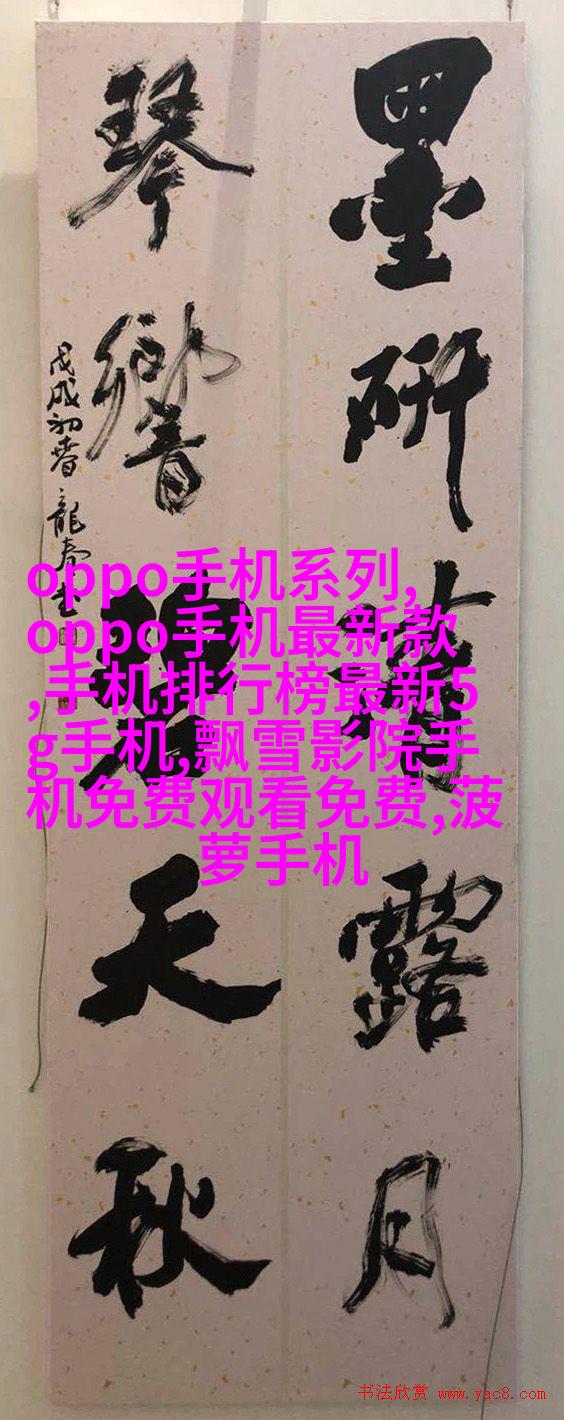 墨研露月
琴響碧天秋
戊戌初春 龍
oppo手机系列,
oppo手机最新款
,手机排行榜最新5
g手机,飘雪影院手
机免费观看免费,菠
萝手机
书法欣赏 www.yac8.com